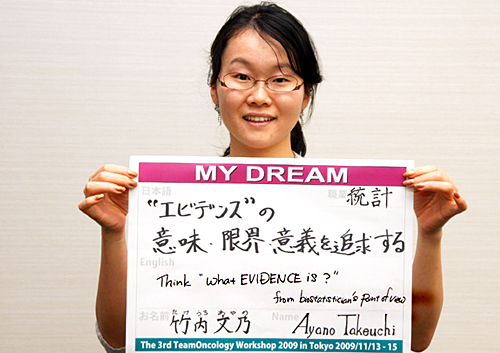 MY DREAM
日本語
職業
統計
“エビデンス”の
意味・限界・意義を追求する
English
Think "What EVIDENCE is?"
from biostatistician's point of view
お名前
たけ うち あや の
竹内 文乃
Name
Ayano Takeuchi
The 3rd TeamOncology Workshop 2009 in Tokyo 2009/11/13 - 15